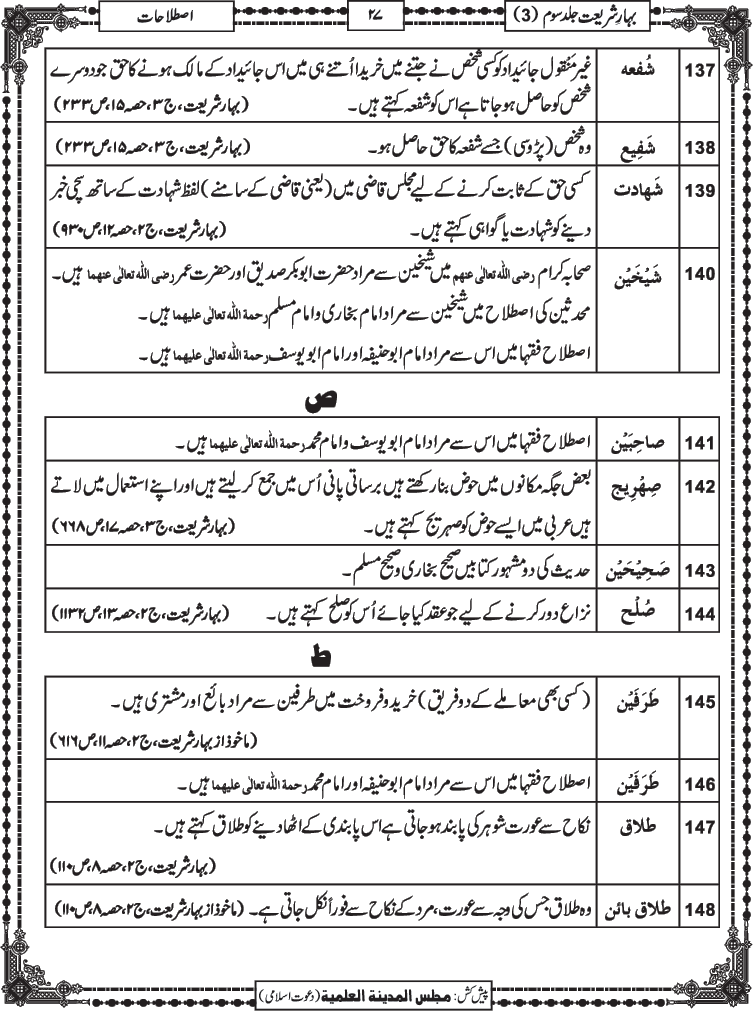 بہار شریعت جلد سوم (3)
۲۷
اصطلاحات
137 شُفعہ غیر منقول جائیداد کو کسی شخص نے جتنے میں خریدا اُتنے ہی میں اس جائیداد کے مالک ہونے کا حق جو دوسرے
شخص کو حاصل ہو جاتا ہے اس کو شفعہ کہتے ہیں۔ (بہار شریعت، ج۳، حصہ ۱۵، ص۲۳۳)
138 شَفِیع وہ شخص (پڑوسی) جسے شفعہ کا حق حاصل ہو۔ (بہار شریعت، ج۳، حصہ ۱۵، ص۲۳۳)
139 شَہادت کسی حق کے ثابت کرنے کے لیے مجلس قاضی میں (یعنی قاضی کے سامنے) لفظ شہادت کے ساتھ سچی خبر
دینے کو شہادت یا گواہی کہتے ہیں۔ (بہار شریعت، ج۲، حصہ ۱۲، ص۹۳۰)
140 شَیْخَیْن صحابہ کرام رضی اللہ تعالٰی عنہم میں شیخین سے مراد حضرت ابوبکر صدیق اور حضرت عمر رضی اللہ تعالٰی عنھما ہیں۔
محدثین کی اصطلاح میں شیخین سے مراد امام بخاری و امام مسلم رحمۃ اللہ تعالٰی علیھما ہیں۔
اصطلاح فقہا میں اس سے مراد امام ابو حنیفہ اور امام ابو یوسف رحمۃ اللہ تعالٰی علیھما ہیں۔
ص
141 صاحِبَیْن اصطلاح فقہا میں اس سے مراد امام ابو یوسف و امام محمد رحمۃ اللہ تعالٰی علیھما ہیں۔
142 صِہْرِیج بعض جگہ مکانوں میں حوض بنا رکھتے ہیں برساتی پانی اُس میں جمع کر لیتے ہیں اور اپنے استعمال میں لاتے
ہیں عربی میں ایسے حوض کو صہریج کہتے ہیں۔ (بہار شریعت، ج۳، حصہ ۱۷، ص۶۶۸)
143 صَحِیْحَیْن حدیث کی دو مشہور کتابیں صحیح بخاری و صحیح مسلم۔
144 صُلْح نزاع دور کرنے کے لیے جو عقد کیا جائے اُس کو صلح کہتے ہیں۔ (بہار شریعت، ج۲، حصہ ۱۳، ص۱۱۳۲)
ط
145 طَرَفَیْن (کسی بھی معاملے کے دو فریق) خرید و فروخت میں طرفین سے مراد بائع اور مشتری ہیں۔
(ماخوذ از بہار شریعت، ج۲، حصہ ۱۱، ص۶۱۶)
146 طَرَفَیْن اصطلاح فقہا میں اس سے مراد امام ابو حنیفہ اور امام محمد رحمۃ اللہ تعالٰی علیھما ہیں۔
147 طلاق نکاح سے عورت شوہر کی پابند ہو جاتی ہے اس پابندی کے اٹھا دینے کو طلاق کہتے ہیں۔
(بہار شریعت، ج۲، حصہ ۸، ص۱۱۰)
148 طلاق بائن وہ طلاق جس کی وجہ سے عورت، مرد کے نکاح سے فوراً نکل جاتی ہے۔ (ماخوذ از بہار شریعت، ج۲، حصہ ۸، ص۱۱۰)
پیش کش: مجلس المدینۃ العلمیۃ (دعوت اسلامی)